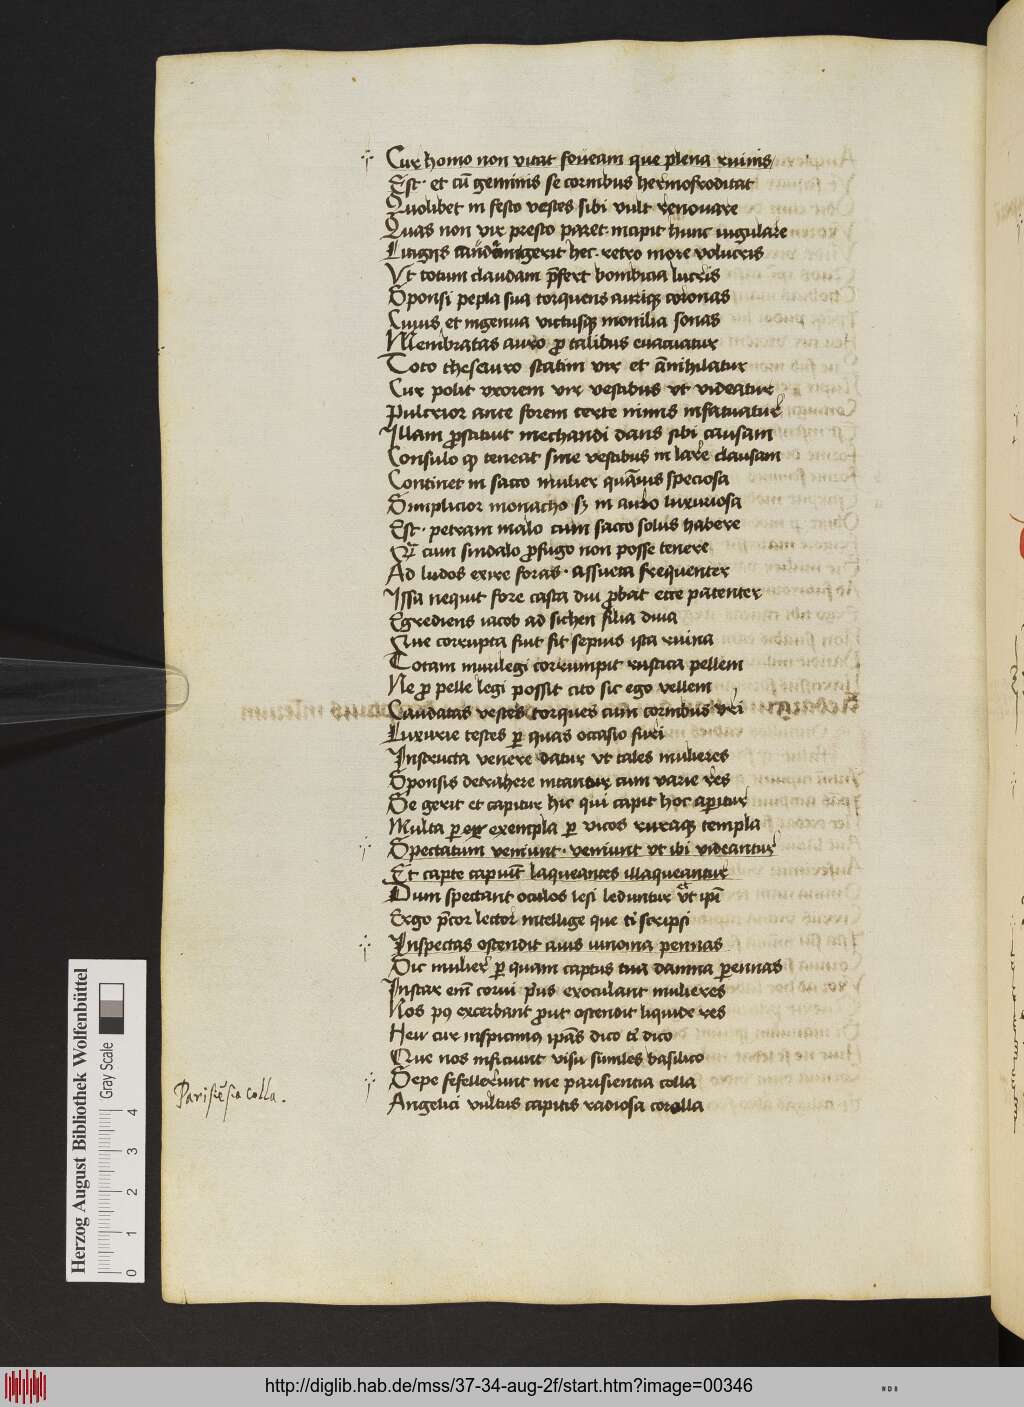 Cur homo non vitat foueam que plena ruinis
Est · et cū geminis se cornibus hermofroditat
Quolibet in festo vestes sibi vult renouare
Quas non vir presto paret · incipit hunc iugulare
gerit hec · retro more volucris
Vt totum claudam p̄fert bombicia lucris
Sponsi pepla sua torquens auriqꝫ coronas
Cuius et ingenua victusqꝫ monilia sonas
Membratas auro ꝓ talibus euacuatur
Toto thesauro statim vir et ānihilatur
Cur polit vxorem vir vestibus vt videatur
Pulcrior ante forem certe nimis infatuatur
Illam ꝓstituit mechandi dans sibi causam
Consulo qꝫ teneat sine vestibus in lare clausam
Continet in sacco mulier quāuis speciosa
Simplicior monacho sꝫ in auro luxuriosa
Est · petram malo cum sacco solus habere
cum sindalo ꝓfugo non posse tenere
Ad ludos exire foras · assueta frequenter
Ipsa nequit fore casta diu ꝓbat ecce patenter
Egrediens iacob ad sichen filia dina
Que corrupta fuit fit sepius ista ruina
Totam murilegi corrumpit rustica pellem
Ne ꝓ pelle legi possit cito sic ego vellem
Caudatas vestes torques cum cornibus vri
Luxurie testes ꝑ quas occasio furi
Instructa venere datur vt tales mulieres
Sponsis detrahere nitantur cum varie res
Se gerit et capitur hic qui capit hoc aperitur
Multa ꝑ exempla ꝑ vicos ruraqꝫ templa
Spectatum veniunt · veniunt vt ibi videantur
Et capte capiūt laqueantes illaqueantur
Dum spectant oculos lesi leduntur vt ipī
Ergo p̄cor lector intellige que tī scripsi
Inspectas ostendit auis iunonia pennas
Sic mulier ꝑ quam captus tua damna ꝑennas
Instar em̄ corui p̄us exoculant mulieres
Nos pꝯ excerbant ꝓut ostendit liquide res
Heu cur inspicimꝯ ipās dico tī dico
Que nos inficiunt visu similes basilico
Sepe fefellerunt me parisientia colla
Angelici vultus capitis radiosa corolla
Parisiēsia colla.
Herzog August Bibliothek Wolfenbüttel
Gray Scale
0 1 2 3 4
http://diglib.hab.de/mss/37-34-aug-2f/start.htm?image=00346